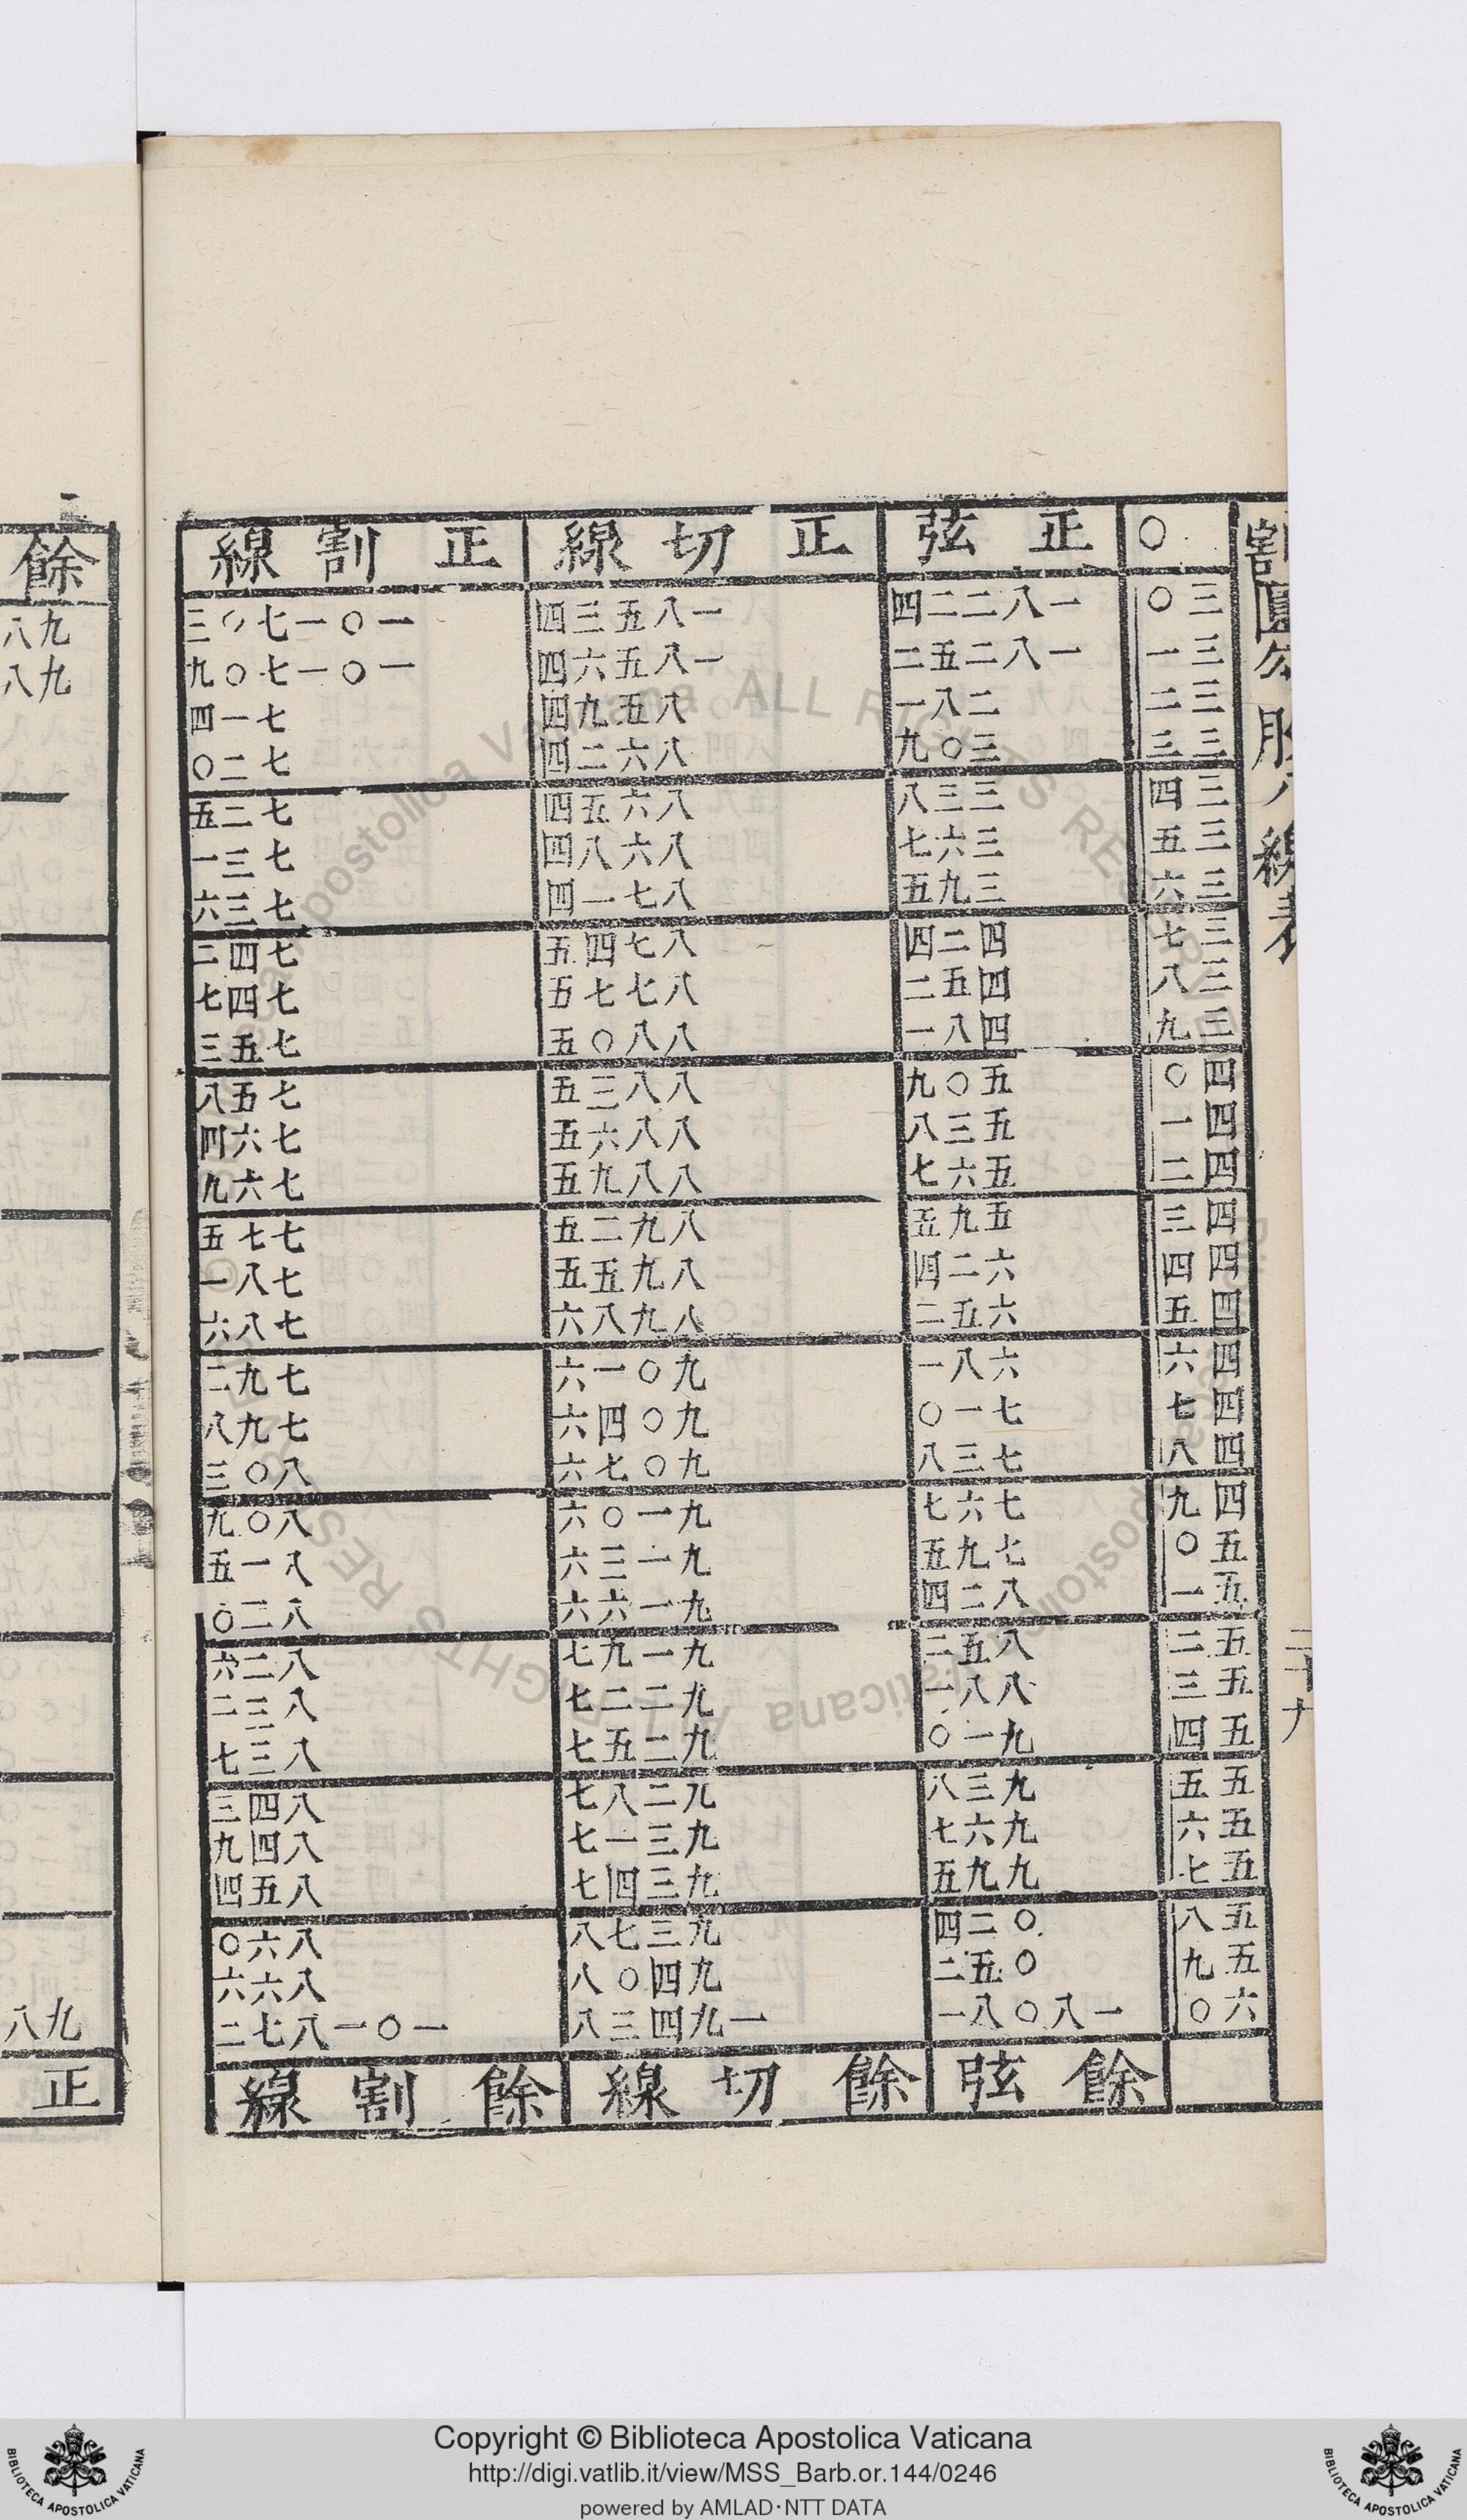 割圓勾股八線表
二十九
〇 正弦 正切線 正割線
三〇 一八二二四 一八五三四 一〇一七〇三
三一 一八二五二 一八五六四 一〇一七〇九
三二 二八一 八五九四 七一四
三三 三〇九 八六二四 七二〇
三四 三三八 八六五四 七二五
三五 三六七 八六八四 七三一
三六 三九五 八七一四 七三六
三七 四二四 八七四五 七四二
三八 四五二 八七七五 七四七
三九 四八一 八八〇五 七五三
四〇 五〇九 八八三五 七五八
四一 五三八 八八六五 七六四
四二 五六七 八八九五 七六九
四三 五九五 八九二五 七七五
四四 六二四 八九五五 七八一
四五 六五二 八九八六 七八六
四六 六八一 九〇一六 七九二
四七 七一〇 九〇四六 七九八
四八 七三八 九〇七六 八〇三
四九 七六七 九一〇六 八〇九
五〇 七九五 九一三六 八一五
五一 八二四 九一六六 八二〇
五二 八五二 九一九七 八二六
五三 八八一 九二二七 八三二
五四 九一〇 九二五七 八三七
五五 九三八 九二八七 八四三
五六 九六七 九三一七 八四九
五七 九九五 九三四七 八五四
五八 〇二四 九三七八 八六〇
五九 〇五二 九四〇八 八六六
六〇 一八〇八一 一九四三八 一〇一八七二
餘弦 餘切線 餘割線
餘
九八
九八
九八
正
Copyright © Biblioteca Apostolica Vaticana
http://digi.vatlib.it/view/MSS_Barb.or.144/0246
powered by AMLAD·NTT DATA
BIBLIOTECA APOSTOLICA VATICANA
BIBLIOTECA APOSTOLICA VATICANA